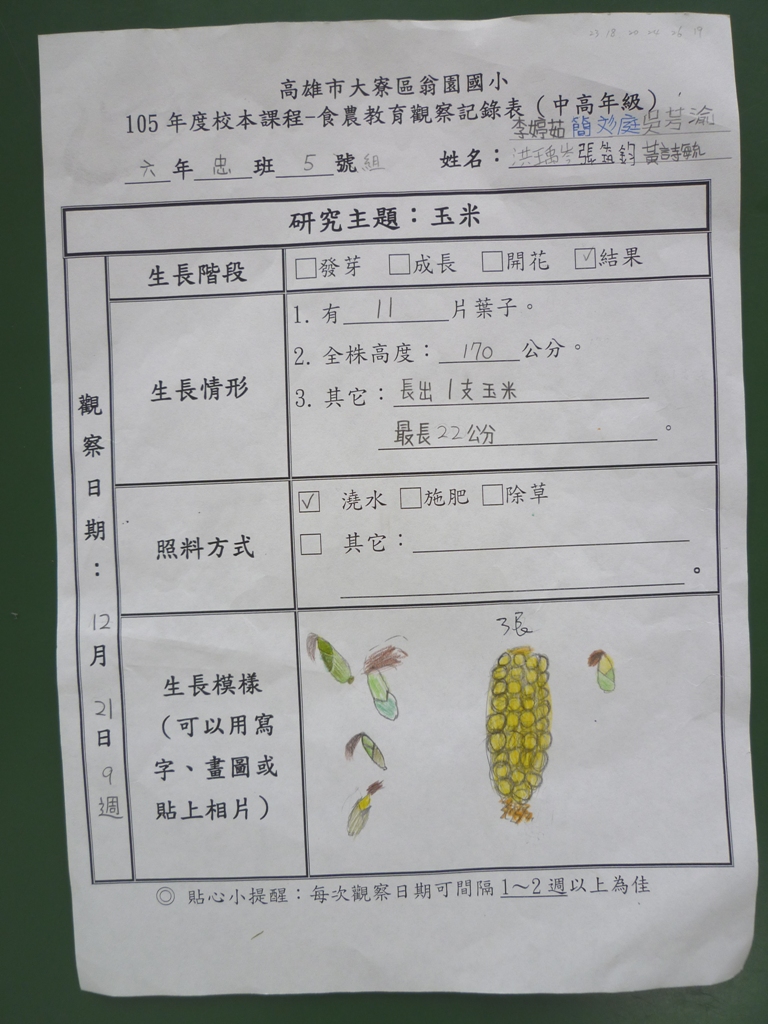 23 18 20 24 26 19
高雄市大寮區翁園國小
105 年度校本課程-食農教育觀察記錄表（中高年級）
李婷茹 簡 庭 吳芳渝
六年忠班5號組 姓名：洪瑀岑 張筑鈞 黃詩
研究主題：玉米
觀察日期：12月21日 9週
生長階段
□發芽 □成長 □開花 ☑結果
生長情形
1. 有 11 片葉子。
2. 全株高度：170公分。
3. 其它：長出1支玉米
最長22公分。
照料方式
☑ 澆水 □施肥 □除草
□ 其它：
。
生長模樣
（可以用寫
字、畫圖或
貼上相片）
◎ 貼心小提醒：每次觀察日期可間隔 1～2 週以上為佳